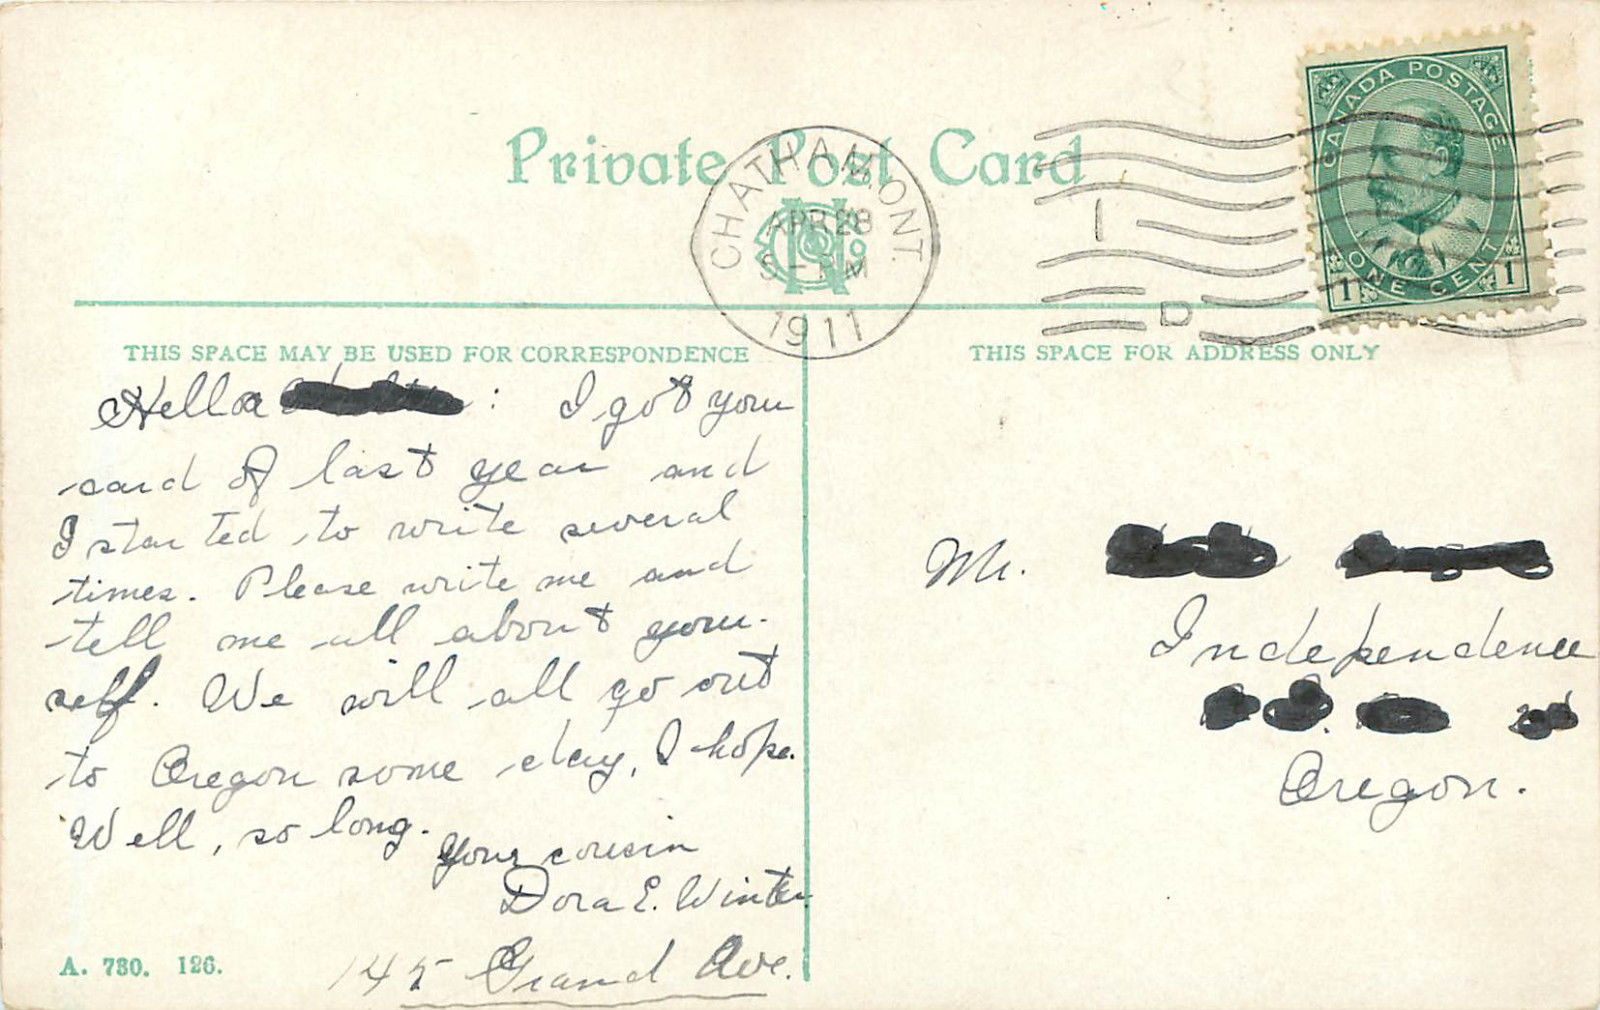 Private Post Card
CHATHAM ONT.
APR 28
PM
1911
1
D
CANADA POSTAGE
ONE CENT
1 1
THIS SPACE MAY BE USED FOR CORRESPONDENCE
THIS SPACE FOR ADDRESS ONLY
Hello : I got your
card of last year and
I started to write several
times. Please write me and
tell me all about your-
self. We will all go out
to Oregon some day, I hope.
Well, so long.
Your cousin
Dora E. Winter
145 Grand Ave.
A. 730. 126.
Mr.
Independence
Oregon.